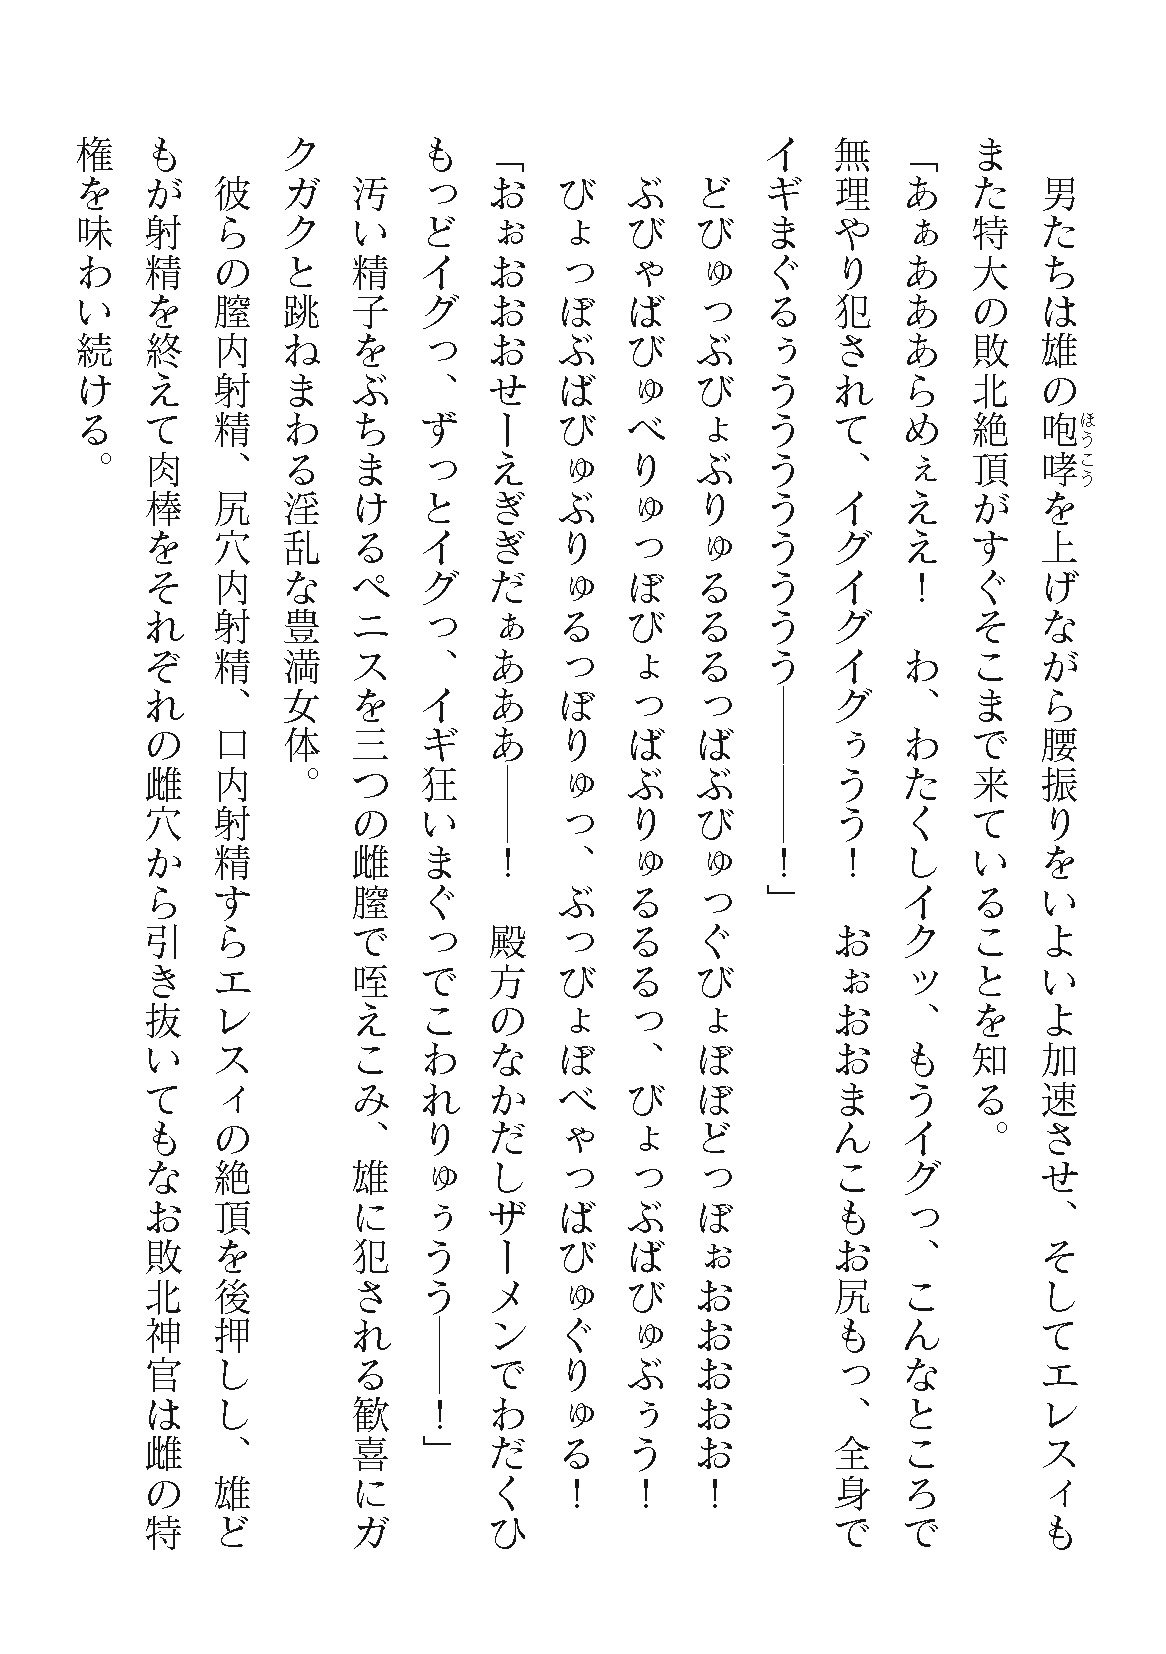 男たちは雄の咆哮を上げながら腰振りをいよいよ加速させ、そしてエレスィも
ほうこう
また特大の敗北絶頂がすぐそこまで来ていることを知る。
「あぁあああらめぇええ！　わ、わたくしイクッ、もうイグっ、こんなところで
無理やり犯されて、イグイグイグぅうう！　おぉおおまんこもお尻もっ、全身で
イギまぐるぅううううううう――――！」
どびゅっぶびょぶりゅるるるっばぶびゅっぐびょぼぼどっぼぉおおおおお！
ぶびゃばびゅべりゅっぼびょっばぶりゅるるるっ、びょっぶばびゅぶぅう！
びょっぼぶばびゅぶりゅるっぼりゅっ、ぶっびょぼべゃっばびゅぐりゅる！
「おぉおおおせーえぎぎだぁあああ――！　殿方のなかだしザーメンでわだくひ
もっどイグっ、ずっとイグっ、イギ狂いまぐっでこわれりゅぅうう――！」
汚い精子をぶちまけるペニスを三つの雌膣で咥えこみ、雄に犯される歓喜にガ
クガクと跳ねまわる淫乱な豊満女体。
彼らの膣内射精、尻穴内射精、口内射精すらエレスィの絶頂を後押しし、雄ど
もが射精を終えて肉棒をそれぞれの雌穴から引き抜いてもなお敗北神官は雌の特
権を味わい続ける。